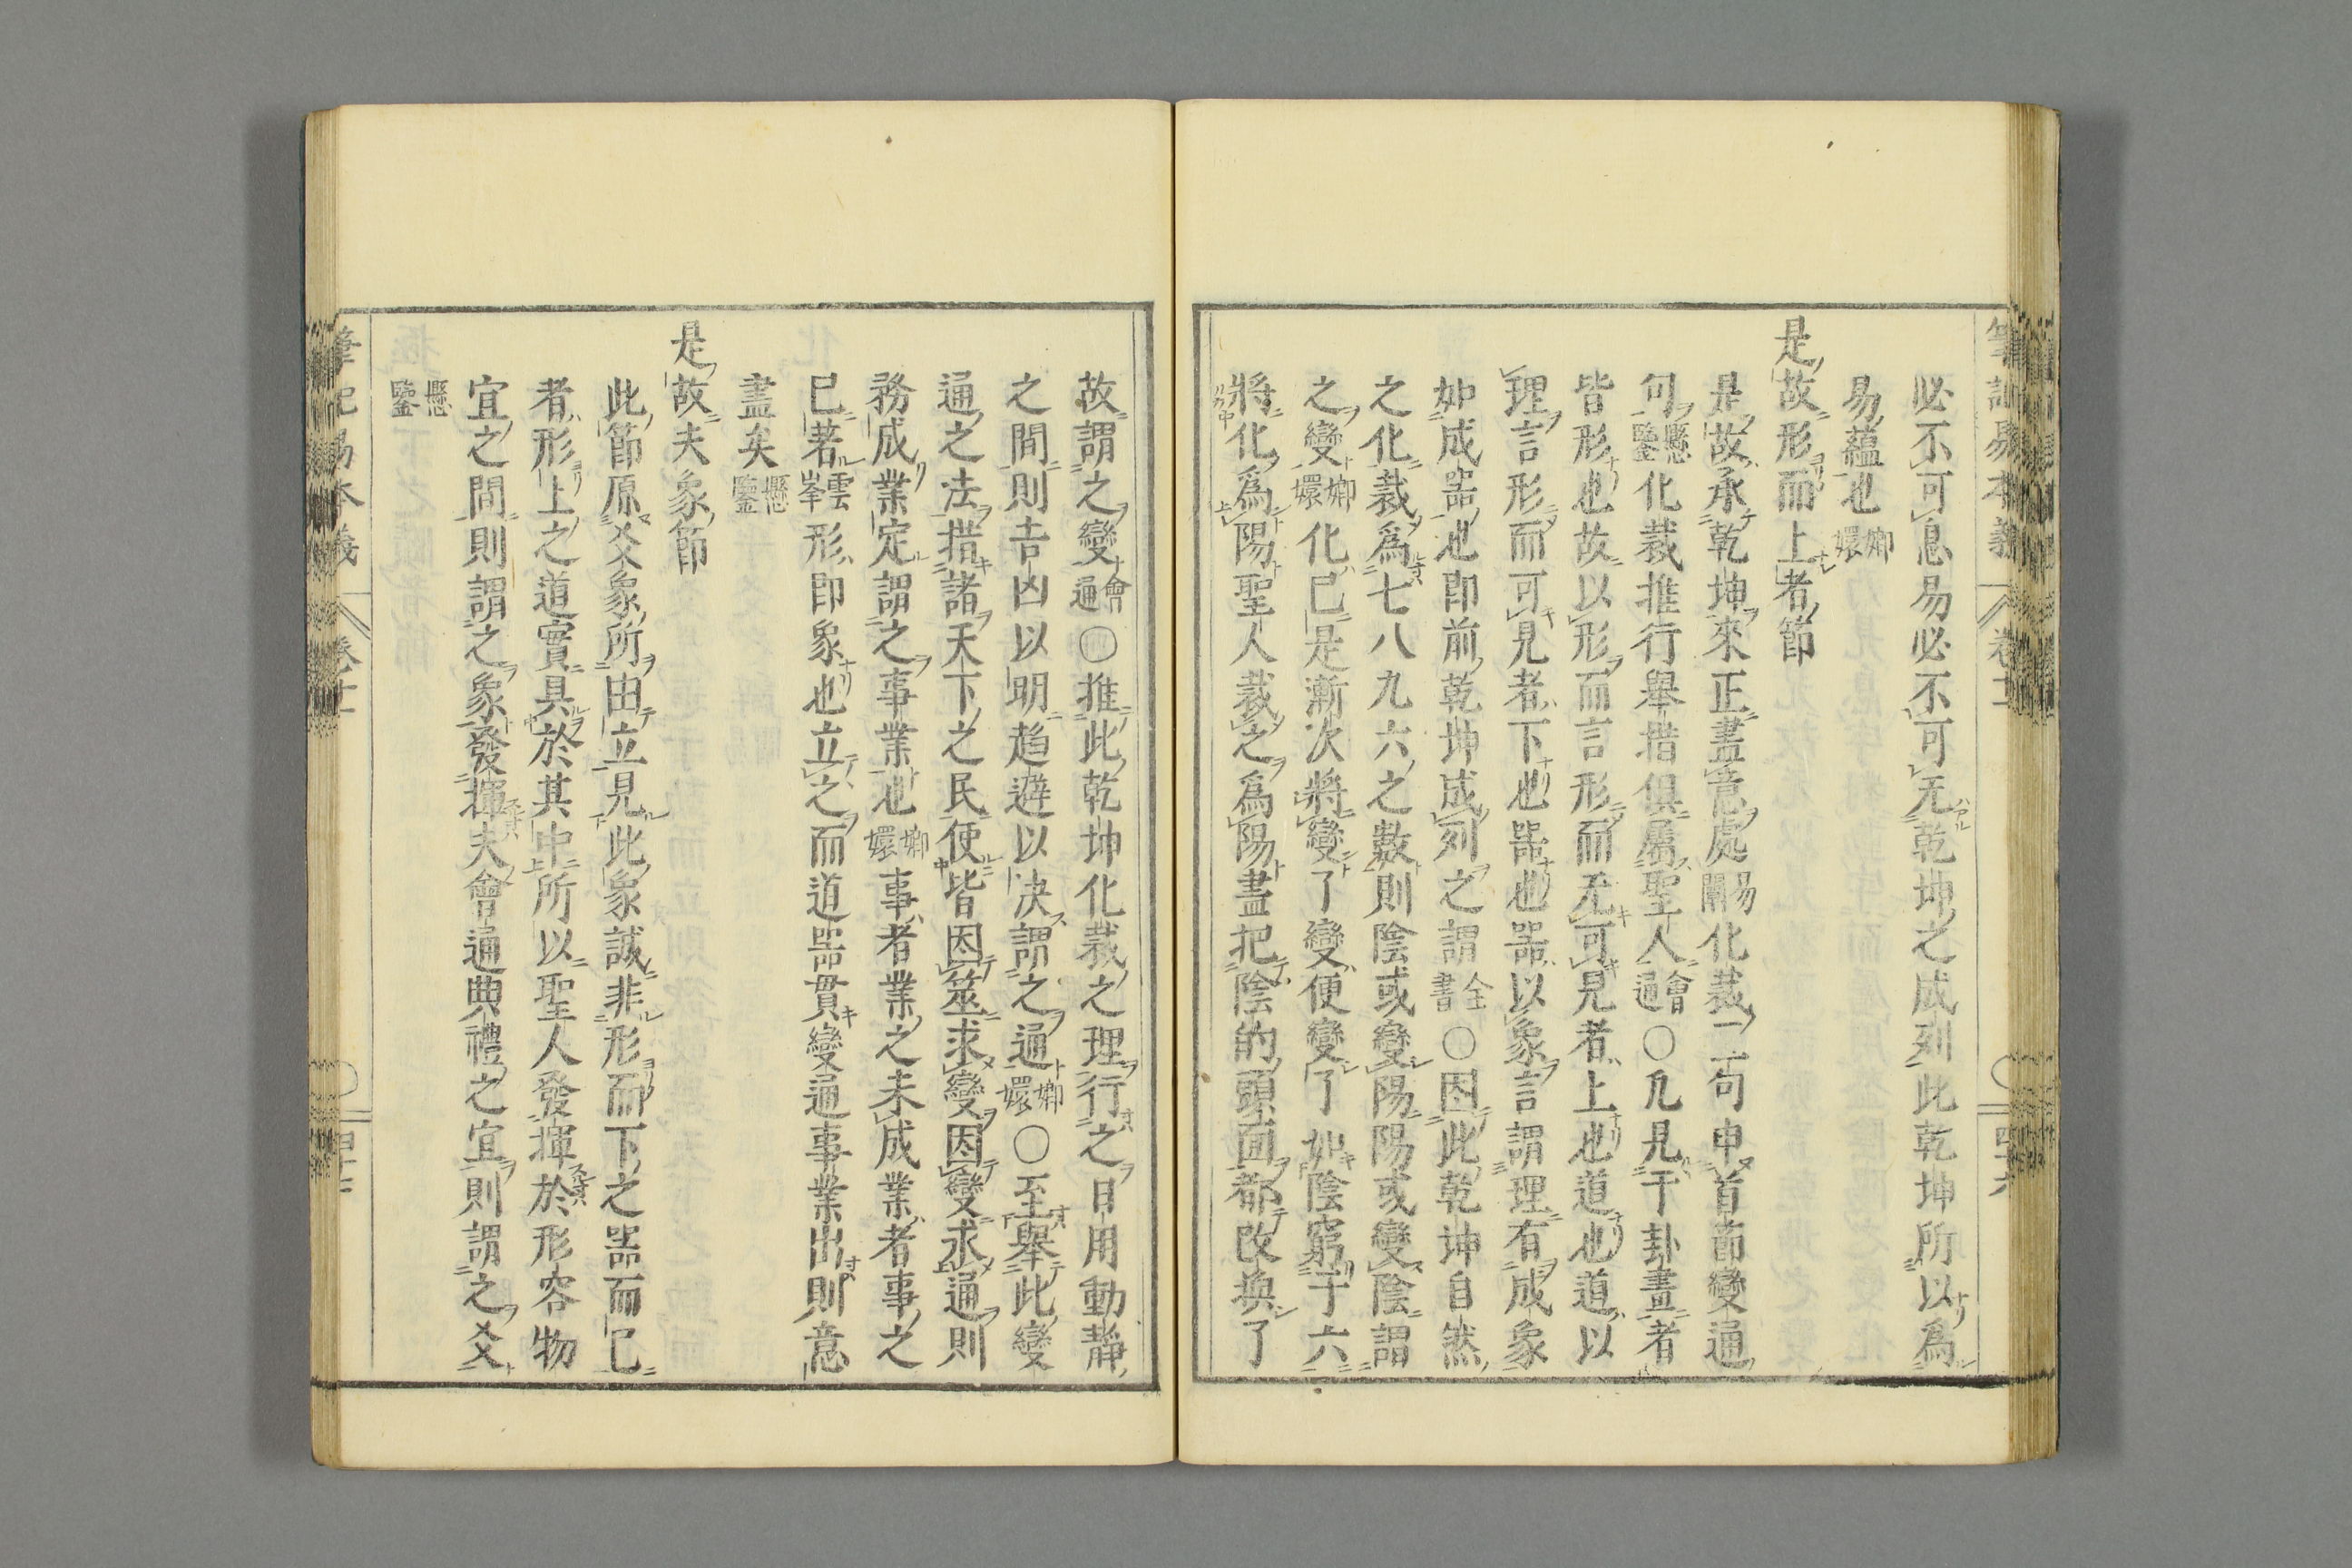 必不可息易必不可无乾坤之成列此乾坤所以爲
易蘊也嫏嬛
是故形而上者節
是故承乾坤來正盡意處易闡化裁二句申首節變通
句懸鑒化裁推行舉措俱屬聖人會通○凡見于卦畫者
皆形也故以形而言形而无可見者上也道也道以
理言形而可見者下也器也器以象言謂理有成象
如成器也即前乾坤成列之謂全書○因此乾坤自然
之化裁爲七八九六之數則陰或變陽陽或變陰謂
之變嫏嬛化已是漸次將變了變便變了如陰窮于六
將化爲陽聖人裁之爲陽盡把陰的頭面都改換了
故謂之變會通○推此乾坤化裁之理行之日用動靜
之間則吉凶以明趋避以决謂之通嫏嬛○至舉此變
通之法措諸天下之民便皆因筮求變因變求通則
務成業定謂之事業也嫏嬛事者業之未成業者事之
已著雲峯形即象也立之而道器貫變通事業出則意
盡矣懸鑒
是故夫象節
此節原爻象所由立見此象誠非形而下之器而已
者形上之道實具於其中所以聖人發揮於形容物
宜之間則謂之象發揮夫會通典禮之宜則謂之爻
懸鑒